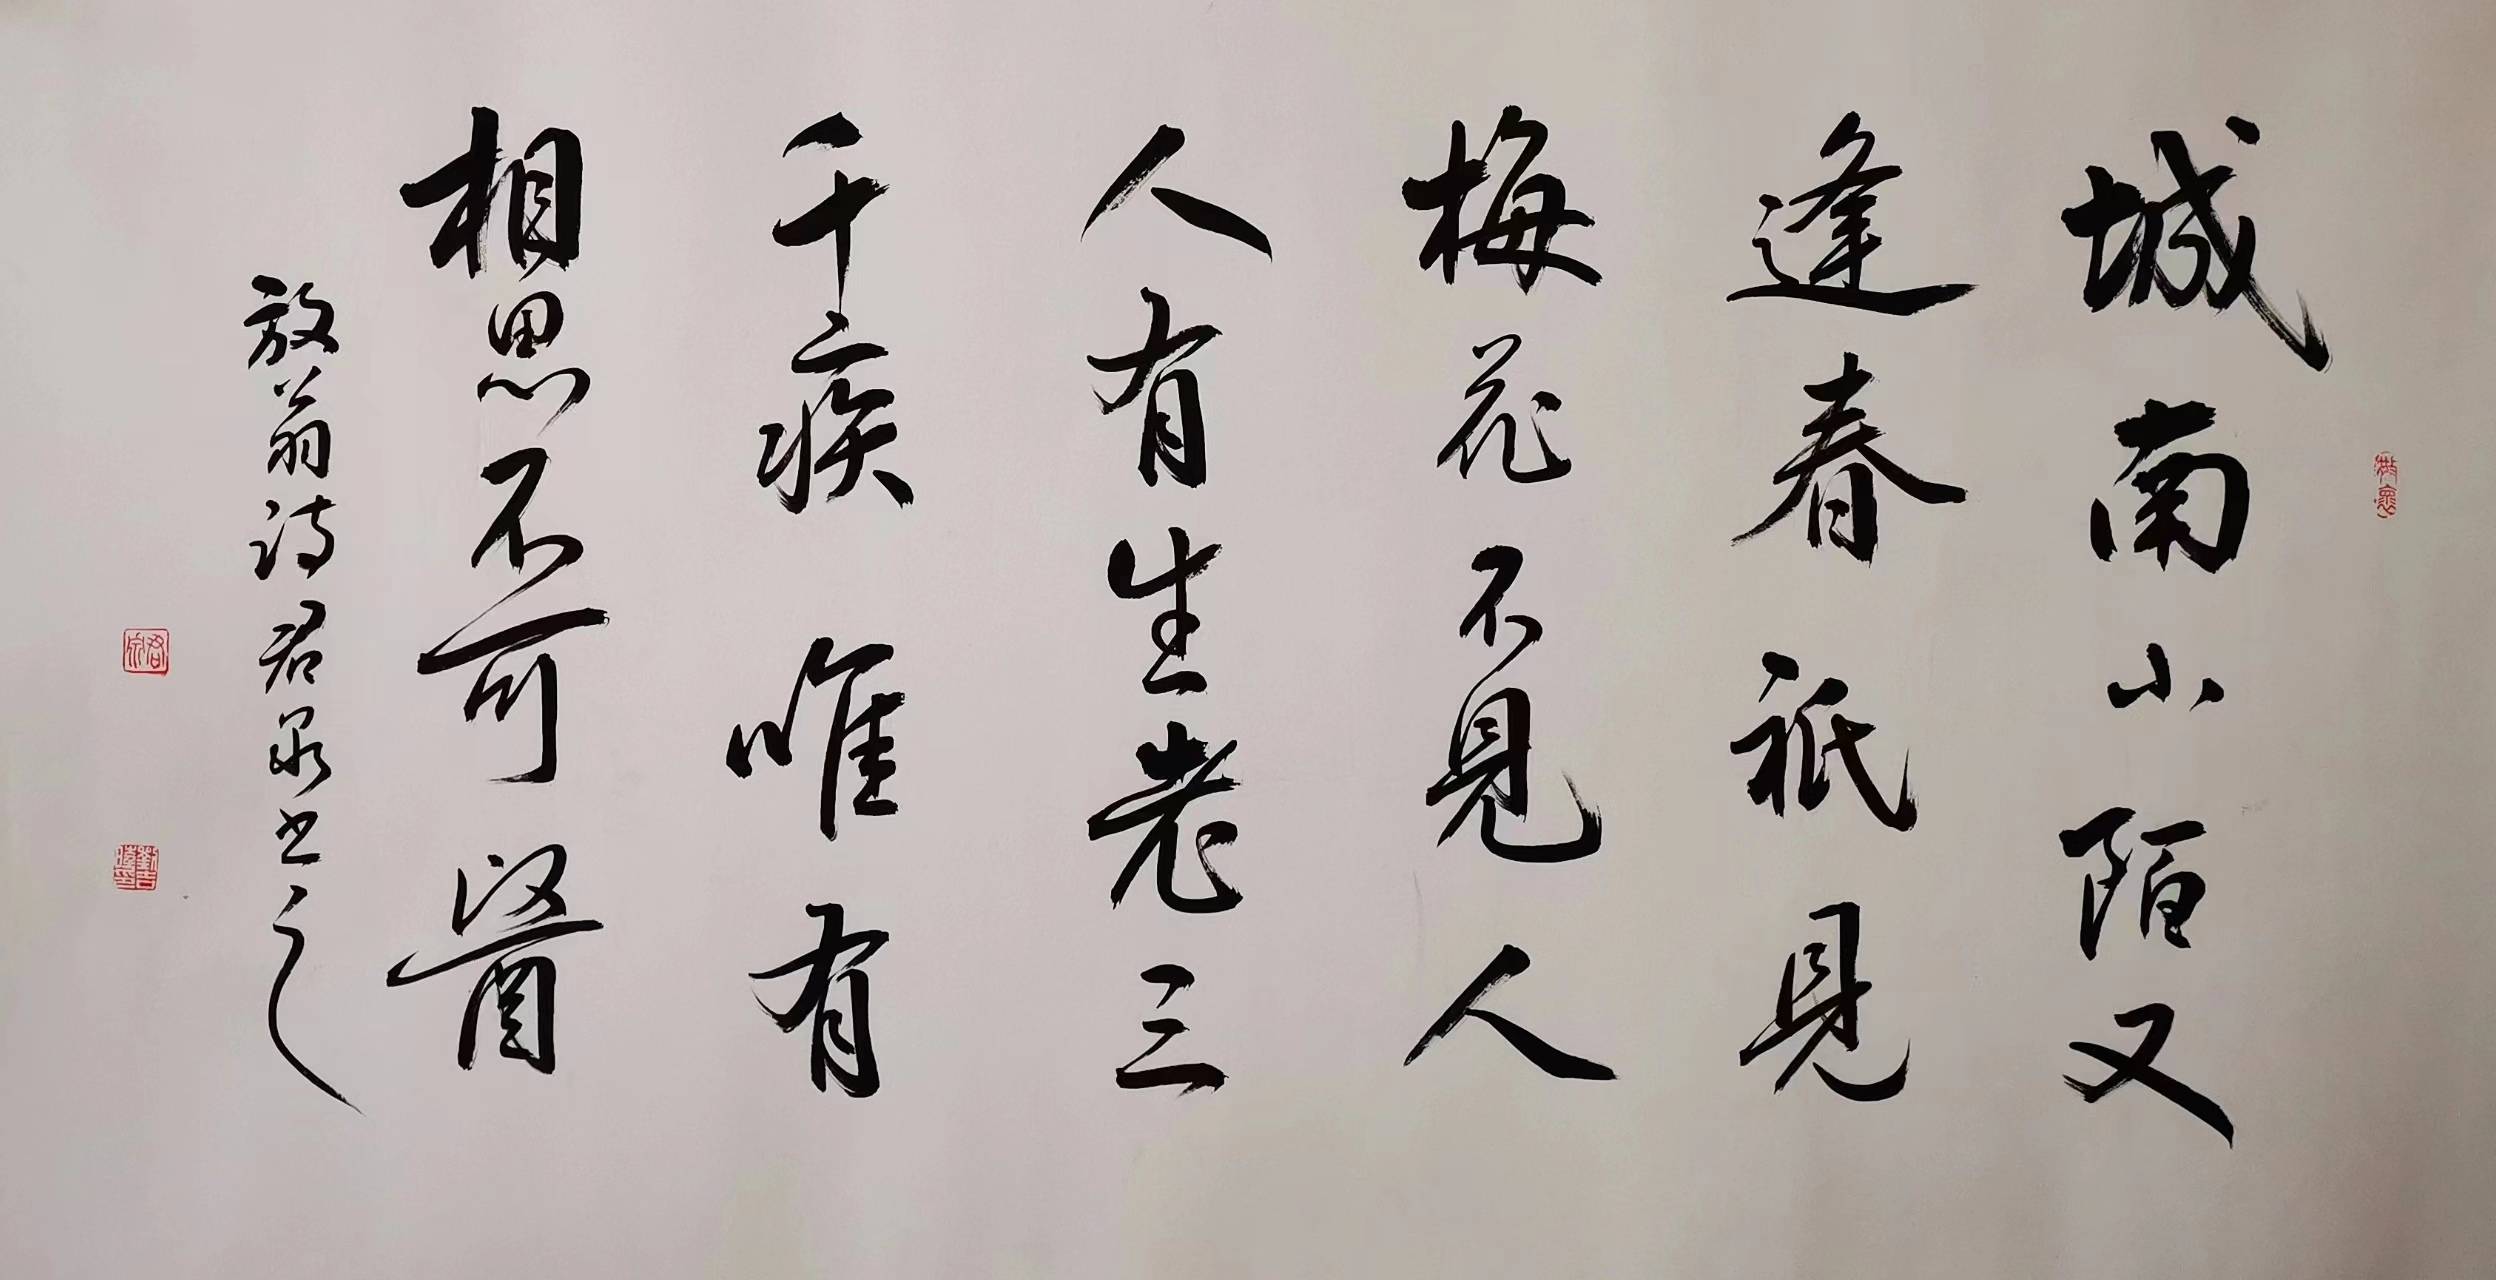 城南小陌又
逢春祇見
梅花不見人
人有生老三
千疾唯有
相思不可醫
放翁詩君泉书之